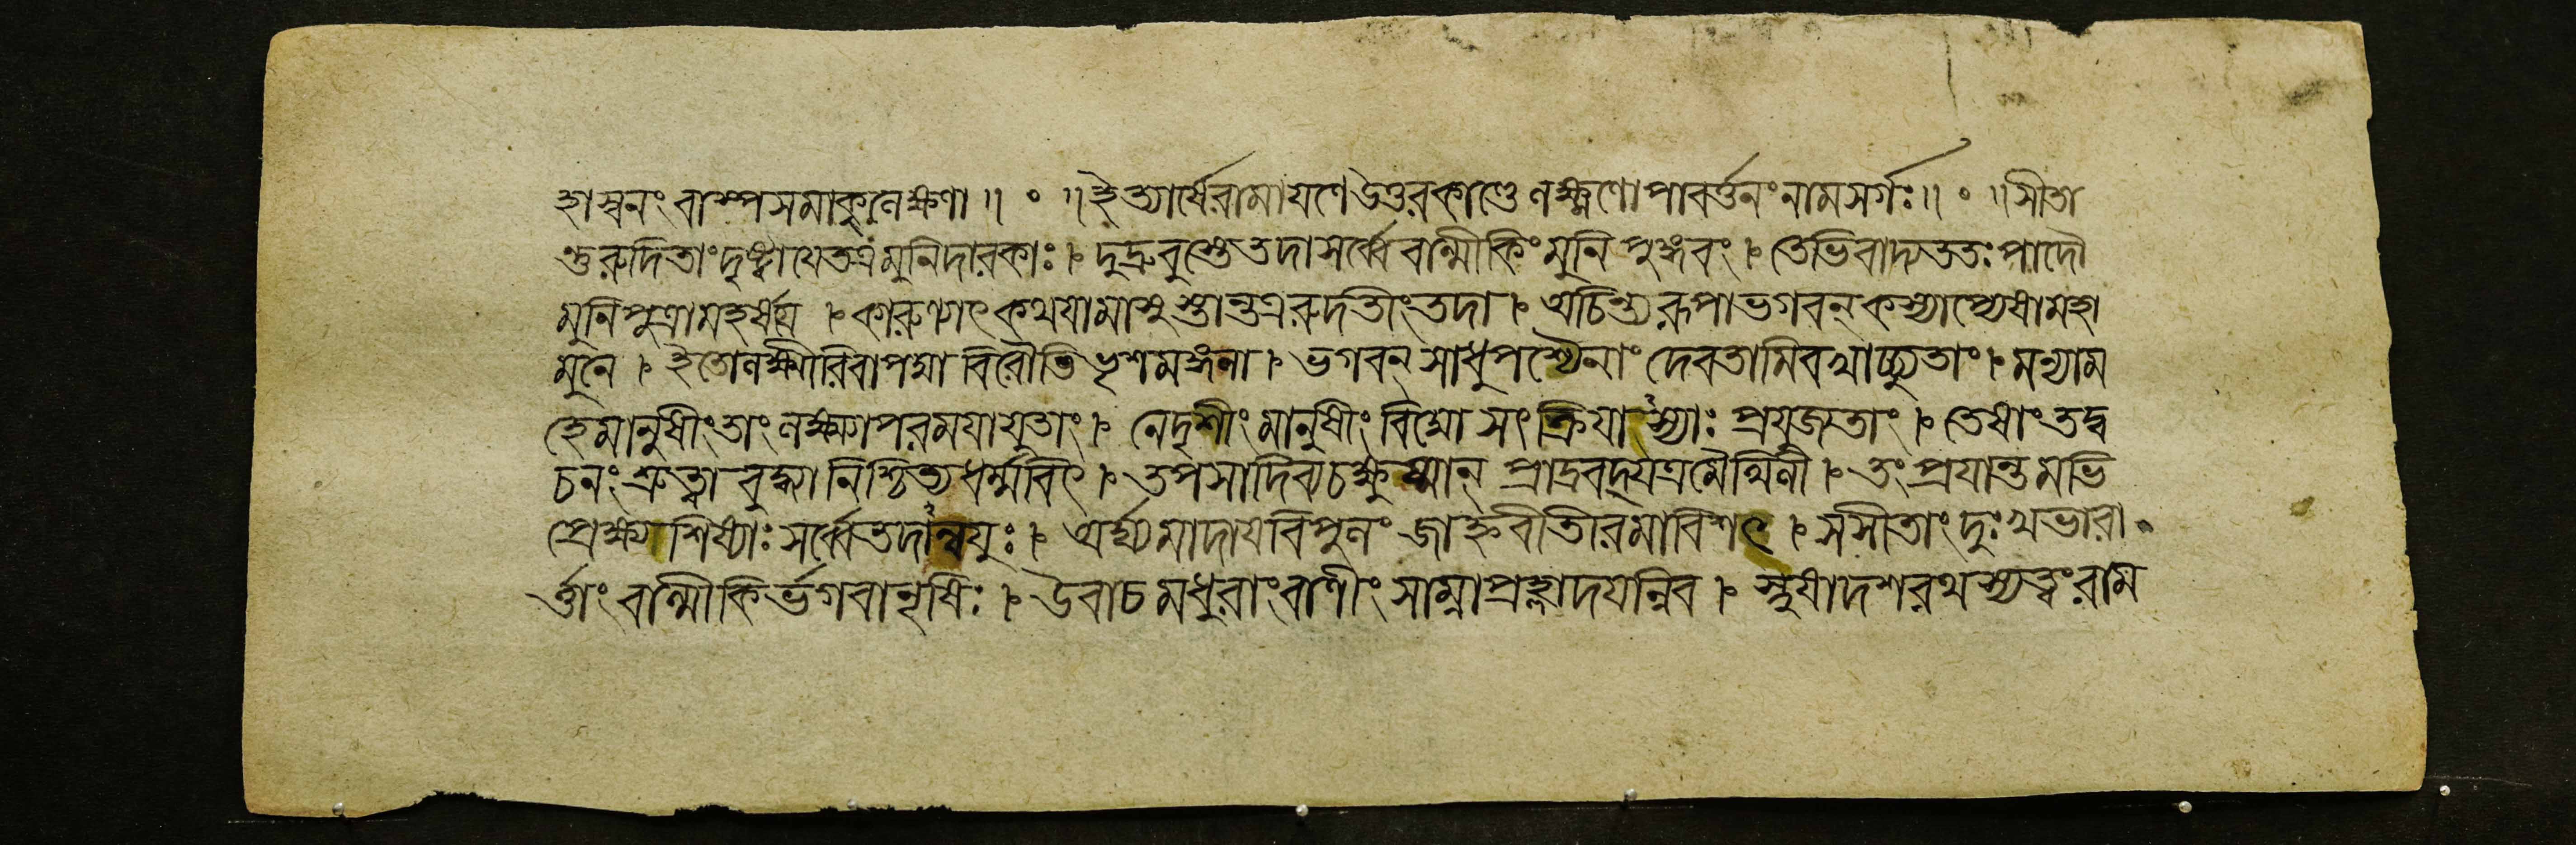 হাস্বনং বাষ্পসমাকুলেক্ষণা ॥ ॰ ॥ ইত্যার্ষেরামাযণেউত্তরকাণ্ডে লক্ষ্মণোপাবর্ত্তনংনামসর্গঃ॥ ॰ ॥সীতা
ন্তুরুদিতাংদৃষ্ট্বাযেতত্রমুনিদারকাঃ। দুদ্রুবুস্তেতদাসর্ব্বে বাল্মীকিংমুনিপুঙ্গবং। তেভিবাদ্যততঃপাদৌ
মুনিপুত্রামহর্ষয়ে । কারুণ্যাৎ কথযামাসুস্তান্তত্ররুদতীংতদা । অচিন্ত্যরূপাভগবন্ কস্যাপ্যেষামহা
মুনে । ইতোলক্ষ্মীরিবাপদ্মা বিরৌতি ভৃশমঙ্গনা । ভগবন্ সাধুপশ্যৈনাং দেবতামিবখাচ্চ্যুতাং। মন্যাম
হেমানুষীংতাং লক্ষ্ম্যাপরমযাযুতাং। নেদৃশীংমানুষীংবিদ্মো সৎক্রিযাঽস্যাঃ প্রযুজ্যতাং। তেষাংতদ্ব
চনংশ্রুত্বা বুদ্ধ্যানিশ্চিত্যধর্ম্মবিৎ। তপসাদিব্যচক্ষুষ্মান্ প্রাদ্রবদ্‌যত্রমৈথিলী । তংপ্রযান্তমভি
প্রেক্ষ্য শিষ্যাঃসর্ব্বেতদাঽন্বযুঃ। অর্ঘ্যমাদাযবিপুলং জাহ্নবীতীরমাবিশৎ। সসীতাংদুঃখভারা॰
র্ত্তাংবাল্মীকির্ভগবানৃষিঃ। উবাচমধুরাংবাণীংসাম্নাপ্রহ্লাদযন্নিব। স্নুষাদশরথস্যত্বংরাম